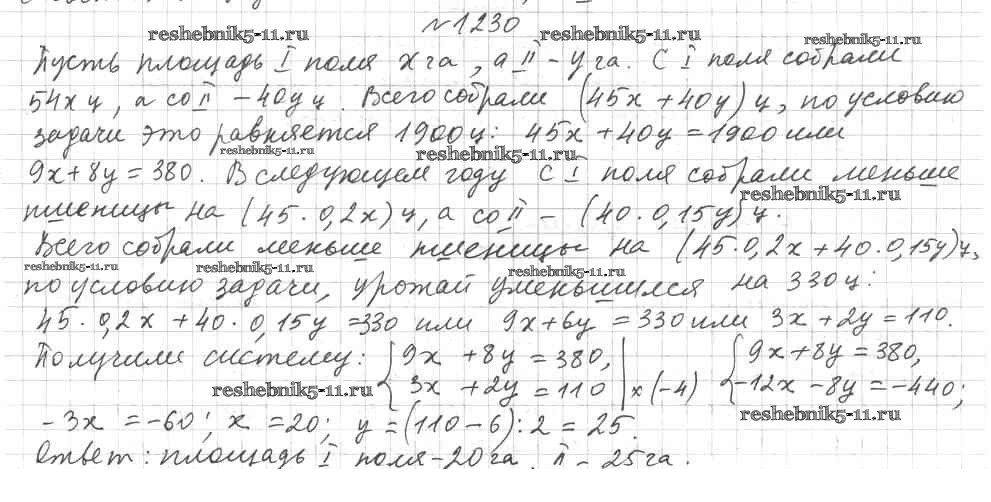 №1230
reshebnik5-11.ru reshebnik5-11.ru reshebnik5-11.ru
Пусть площадь I поля x га, а II – y га. С I поля собрали
54x ц, а со II – 40y ц. Всего собрали (45x + 40y) ц, по условию
задачи это равняется 1900 ц: 45x + 40y = 1900 или
reshebnik5-11.ru reshebnik5-11.ru
9x + 8y = 380. В следующем году с I поля собрали меньше
reshebnik5-11.ru
пшеницы на (45·0,2x) ц, а со II – (40·0,15y) ц.
Всего собрали меньше пшеницы на (45·0,2x + 40·0,15y) ц,
reshebnik5-11.ru reshebnik5-11.ru reshebnik5-11.ru
по условию задачи, урожай уменьшился на 330 ц:
45·0,2x + 40·0,15y = 330 или 9x + 6y = 330 или 3x + 2y = 110.
Получили систему: { 9x + 8y = 380, | { 9x + 8y = 380,
reshebnik5-11.ru 3x + 2y = 110 | x (-4) -12x - 8y = -440;
reshebnik5-11.ru
-3x = -60; x = 20; y = (110 - 6) : 2 = 25.
Ответ: площадь I поля – 20 га, II – 25 га.